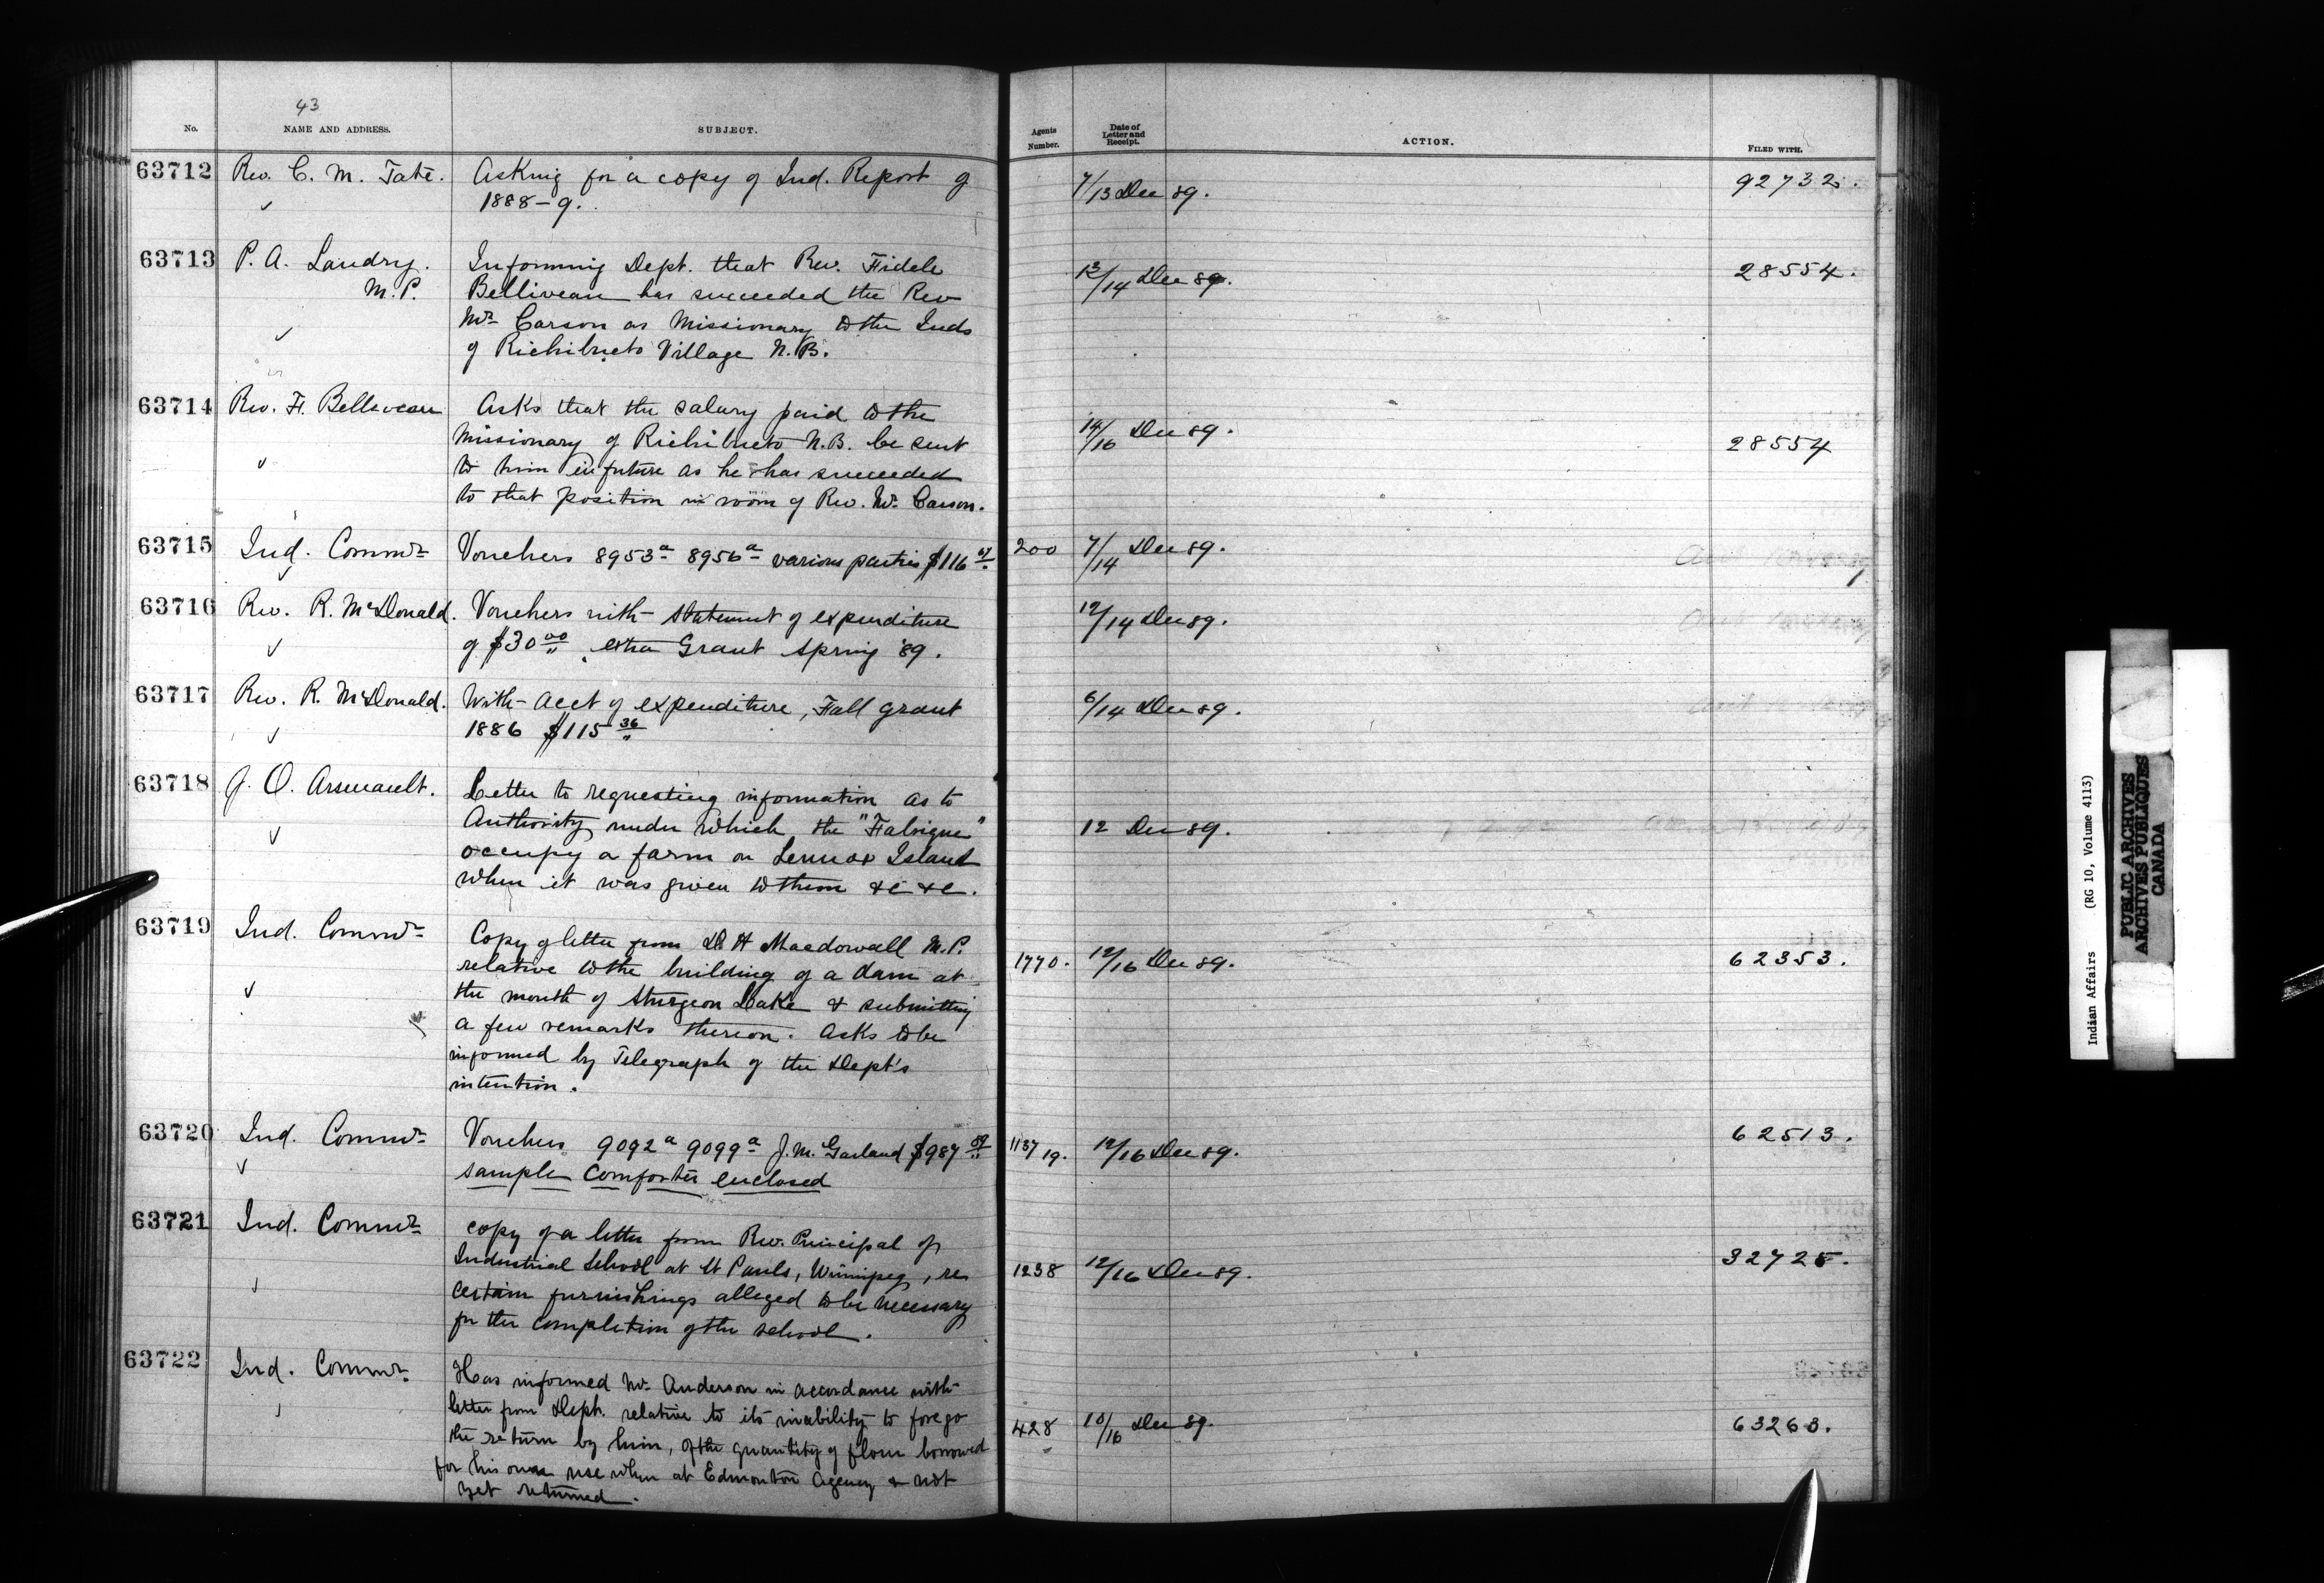 43
No.
NAME AND ADDRESS.
SUBJECT.
Agents Number.
Date of Letter and Receipt.
ACTION.
FILED WITH.
63712
Rev. C. M. Tate.
Asking for a copy of Ind. Report of
1888-9.
7/13 Dec 89.
92732.
63713
P. A. Landry.
M.P.
Informing Dept. that Rev. Fidele
Belliveau has succeeded the Rev
Mr Carson as Missionary to the Inds
of Richibucto Village N.B.
13/14 Dec 89.
28554.
63714
Rev. F. Belliveau
Asks that the salary paid to the
Missionary of Richibucto N.B. be sent
to him in future as he has succeeded
to that position in room of Rev. Mr. Carson.
14/16 Dec 89.
28554
63715
Ind. Commr
Vouchers 8953a 8956a various parties $116
200
7/14 Dec 89.
63716
Rev. R. McDonald.
Vouchers with statement of expenditure
of $30 00 extra Grant Spring '89.
12/14 Dec 89.
63717
Rev. R. McDonald.
With acct of expenditure, Fall grant
1886 $115 36
6/14 Dec 89.
63718
J. O. Arsenault.
Letter to requesting information as to
Authority under which the "Falsigue"
occupy a farm on Lennox Island
when it was given to them &c &c.
12 Dec 89.
63719
Ind. Commr
Copy of letter from D H Macdowall M.P.
relative to the building of a dam at
the mouth of Sturgeon Lake & submitting
a few remarks thereon. Asks to be
informed by Telegraph of the Dept's
intention.
1770.
12/16 Dec 89.
62353.
63720
Ind. Commr
Vouchers 9092a 9099a J. M. Garland $987
sample comforter enclosed
1137 19.
12/16 Dec 89.
62513.
63721
Ind. Commr
copy of a letter from Rev. Principal of
Industrial School at St Pauls, Winnipeg, re
certain furnishings alleged to be necessary
for the completion of the school.
1238
12/16 Dec 89.
32725.
63722
Ind. Commr
Has informed Mr. Anderson in accordance with
letter from Dept. relative to its inability to forego
the return by him, of the quantity of flour borrowed
for his own use when at Edmonton Agency & not
yet returned.
428
10/16 Dec 89.
63263.
Indian Affairs (RG 10, Volume 4113)
PUBLIC ARCHIVES
ARCHIVES PUBLIQUES
CANADA